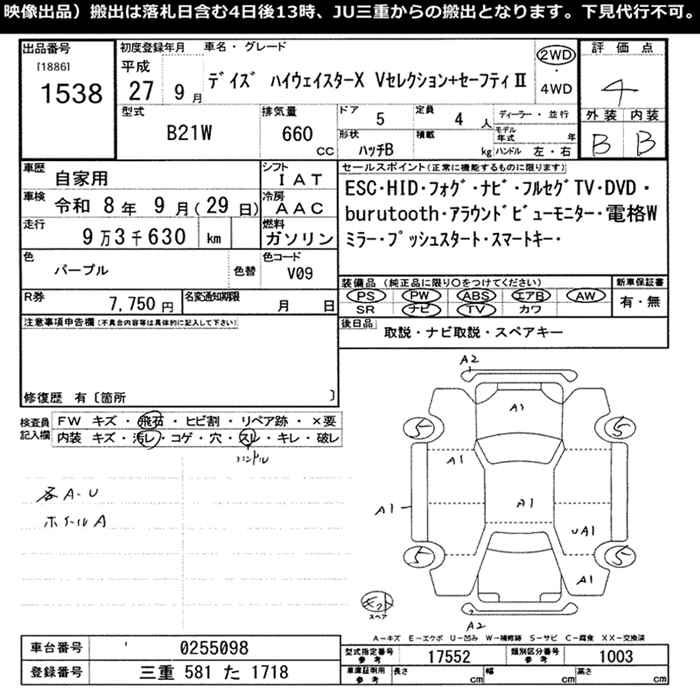 映像出品）搬出は落札日含む4日後13時、JU三重からの搬出となります。下見代行不可。
出品番号
[1886]
1538
初度登録年月
平成
27 9月
車名・グレード
デイズ ハイウェイスターX Vセレクション+セーフティⅡ
2WD
4WD
評価点
4
外装 内装
B B
型式
B21W
排気量
660
cc
ドア
5
定員
4 人
ディーラー・並行
形状
ハッチB
積載
kg
モデル年式 年
ハンドル 左・右
車歴
自家用
シフト
IAT
車検
令和 8年 9月(29日)
冷房
AAC
走行
9万3千630 km
燃料
ガソリン
色
パープル
色替
色コード
V09
R券
7,750円
名変通知期限
月 日
セールスポイント(正常に機能するものに限ります)
ESC・HID・フォグ・ナビ・フルセグTV・DVD・
burutooth・アラウンドビューモニター・電格W
ミラー・プッシュスタート・スマートキー・
装備品 (純正品に限り○をつけてください)
PS PW ABS エアB AW
SR ナビ TV カワ
新車保証書
有・無
後日品
取説・ナビ取説・スペアキー
注意事項申告欄(不具合内容等は具体的に記入して下さい)
修復歴 有〔箇所 〕
検査員
記入欄
FW キズ・飛石・ヒビ割・リペア跡・×要
内装 キズ・汚レ・コゲ・穴・スレ・キレ・破レ
ハンドル
各A-U
ホイールA
A2
A1
5 5
A1
A1 A1
UA1
5 5
A1
スペア
A2
A－キズ E－エクボ U－凹み W－補修跡 S－サビ C－腐食 XX－交換済
車台番号
0255098
登録番号
三重 581 た 1718
型式指定番号
参考
17552
類別区分番号
参考
1003
車庫証明用
参考
長さ cm
幅 cm
高さ cm